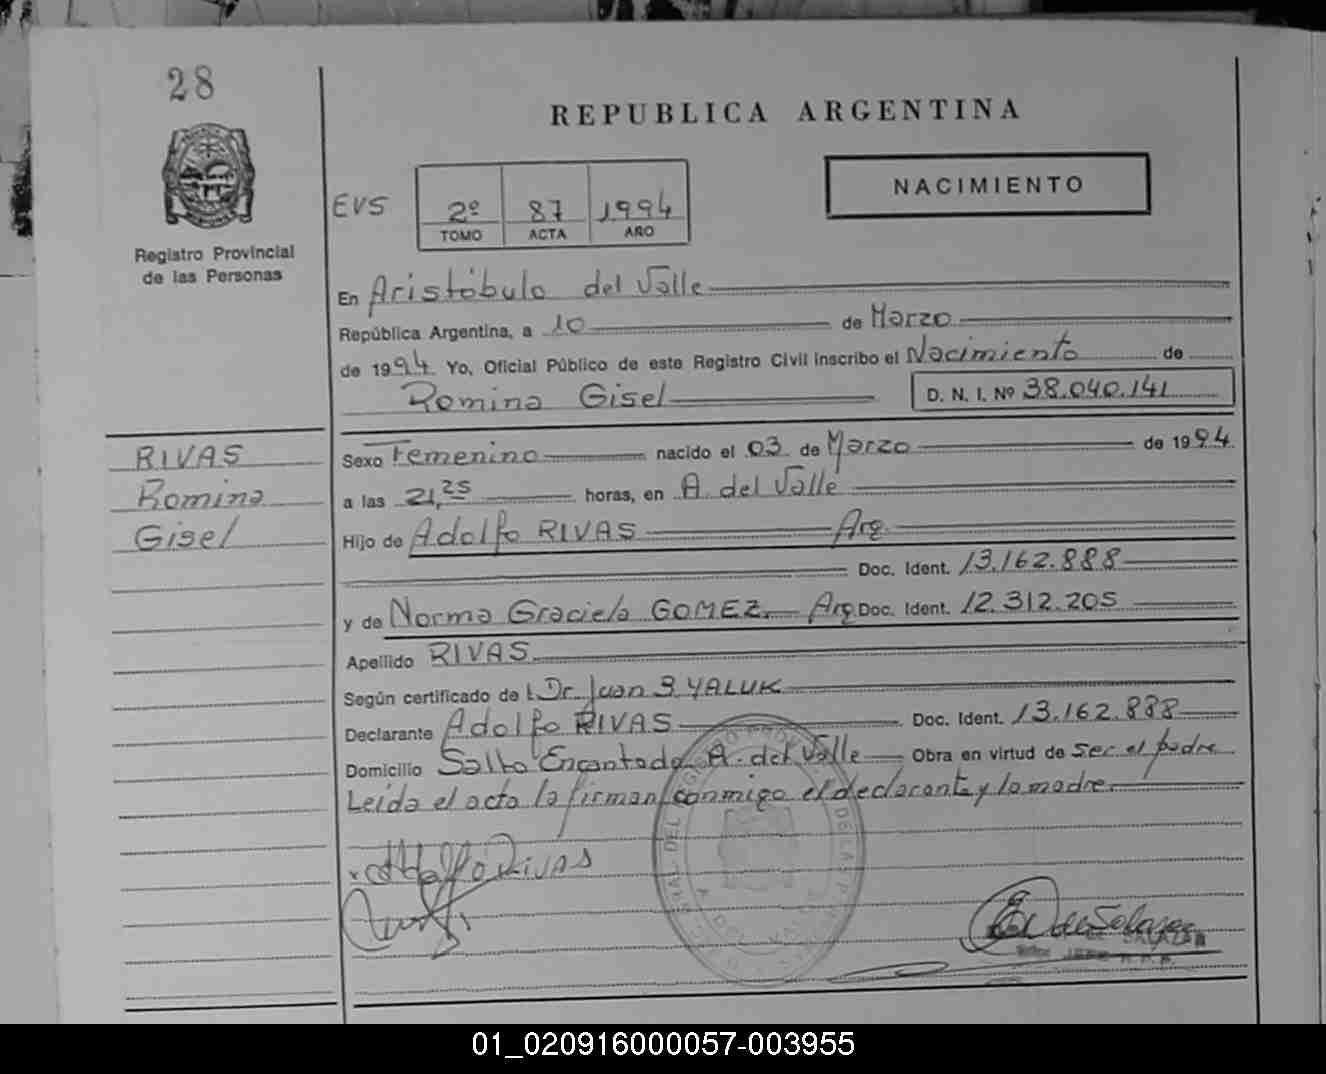 28
REPUBLICA ARGENTINA
NACIMIENTO
EVS
2º 87 1994
TOMO ACTA AÑO
Registro Provincial
de las Personas
En Aristóbulo del Valle
República Argentina, a 10 de Marzo
de 1994 Yo, Oficial Público de este Registro Civil inscribo el Nacimiento de
Romina Gisel D. N. I. Nº 38.040.141
RIVAS
Romina
Gisel
Sexo Femenino nacido el 03 de Marzo de 1994
a las 21,25 horas, en A. del Valle
Hijo de Adolfo RIVAS Arg.
Doc. Ident. 13.162.888
y de Norma Graciela GOMEZ. Arg Doc. Ident. 12.312.205
Apellido RIVAS
Según certificado de l Dr. Juan S. YALUK
Declarante Adolfo RIVAS Doc. Ident. 13.162.888
Domicilio Salto Encantado A. del Valle Obra en virtud de ser el padre
Leída el acta la firman conmigo el declarante y la madre.
Adolfo RIVAS
A. DEL VALLE
SALAZAR
01_020916000057-003955